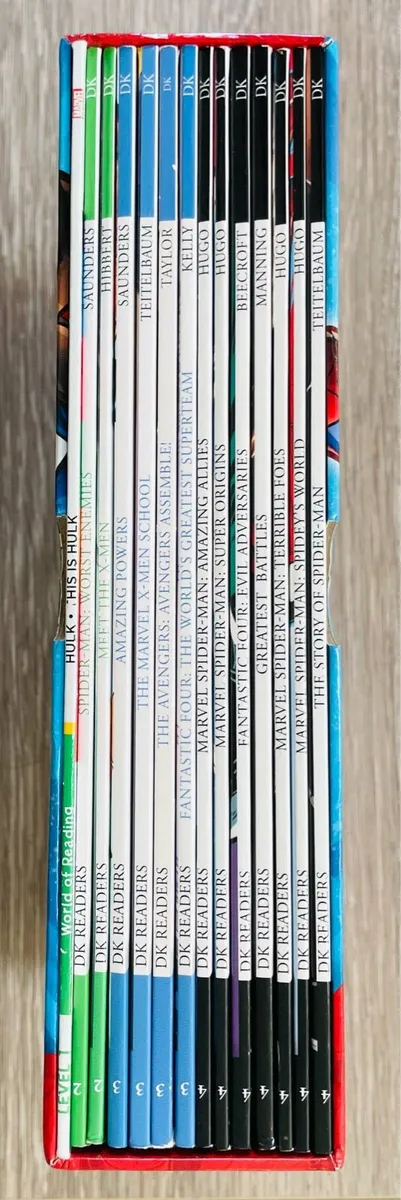 LEVEL 1 World of Reading HULK • THIS IS HULK MARVEL
2 DK READERS SPIDER-MAN: WORST ENEMIES SAUNDERS DK
2 DK READERS MEET THE X-MEN HIBBERT DK
3 DK READERS AMAZING POWERS SAUNDERS DK
3 DK READERS THE MARVEL X-MEN SCHOOL TEITELBAUM DK
3 DK READERS THE AVENGERS: AVENGERS ASSEMBLE! TAYLOR DK
3 DK READERS FANTASTIC FOUR: THE WORLD'S GREATEST SUPERTEAM KELLY DK
4 DK READERS MARVEL SPIDER-MAN: AMAZING ALLIES HUGO DK
4 DK READERS MARVEL SPIDER-MAN: SUPER ORIGINS HUGO DK
4 DK READERS FANTASTIC FOUR: EVIL ADVERSARIES BEECROFT DK
4 DK READERS GREATEST BATTLES MANNING DK
4 DK READERS MARVEL SPIDER-MAN: TERRIBLE FOES HUGO DK
4 DK READERS MARVEL SPIDER-MAN: SPIDEY'S WORLD HUGO DK
4 DK READERS THE STORY OF SPIDER-MAN TEITELBAUM DK